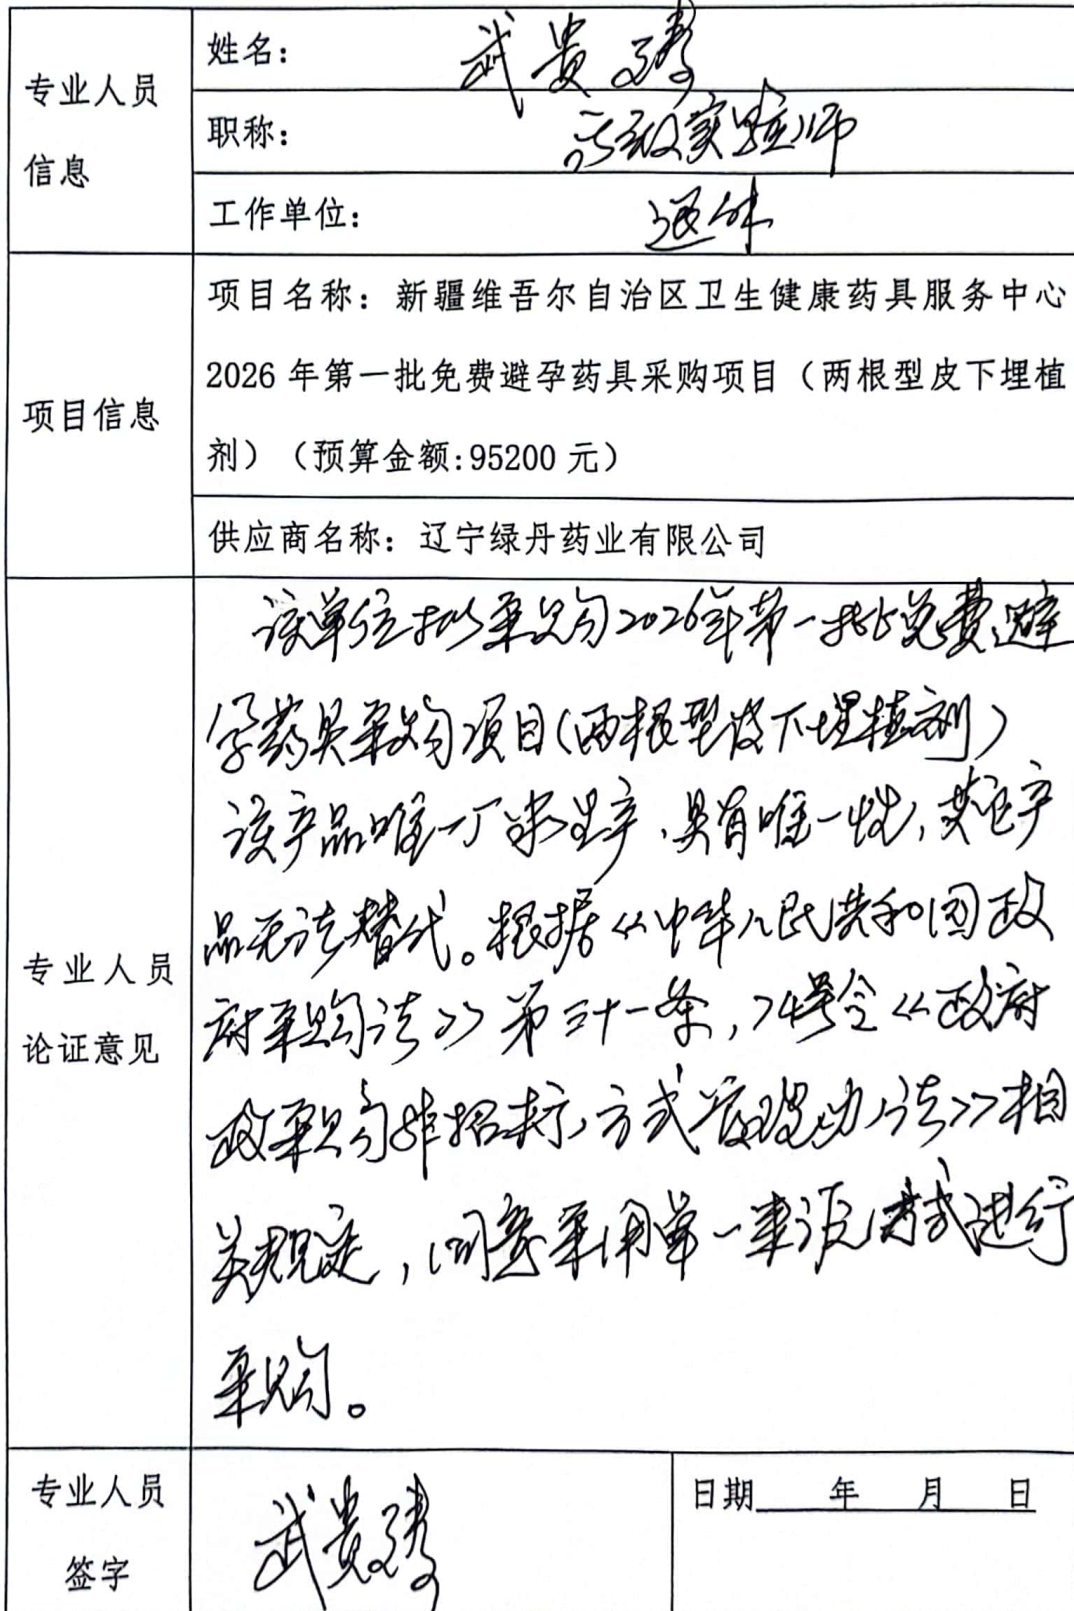 专业人员
信息
姓名：
武贵臻
职称：
高级实验师
工作单位：
退休
项目信息
项目名称：新疆维吾尔自治区卫生健康药具服务中心
2026 年第一批免费避孕药具采购项目（两根型皮下埋植
剂）（预算金额:95200 元）
供应商名称：辽宁绿丹药业有限公司
专业人员
论证意见
该单位拟采购2026年第一批免费避
孕药具采购项目(两根型皮下埋植剂)
该产品唯一厂家生产，具有唯一性，其它产
品无法替代。根据《中华人民共和国政
府采购法》第三十一条，74号令《政府
政采购非招标方式管理办法》相
关规定，同意采用单一来源方式进行
采购。
专业人员
签字
武贵臻
日期 年 月 日